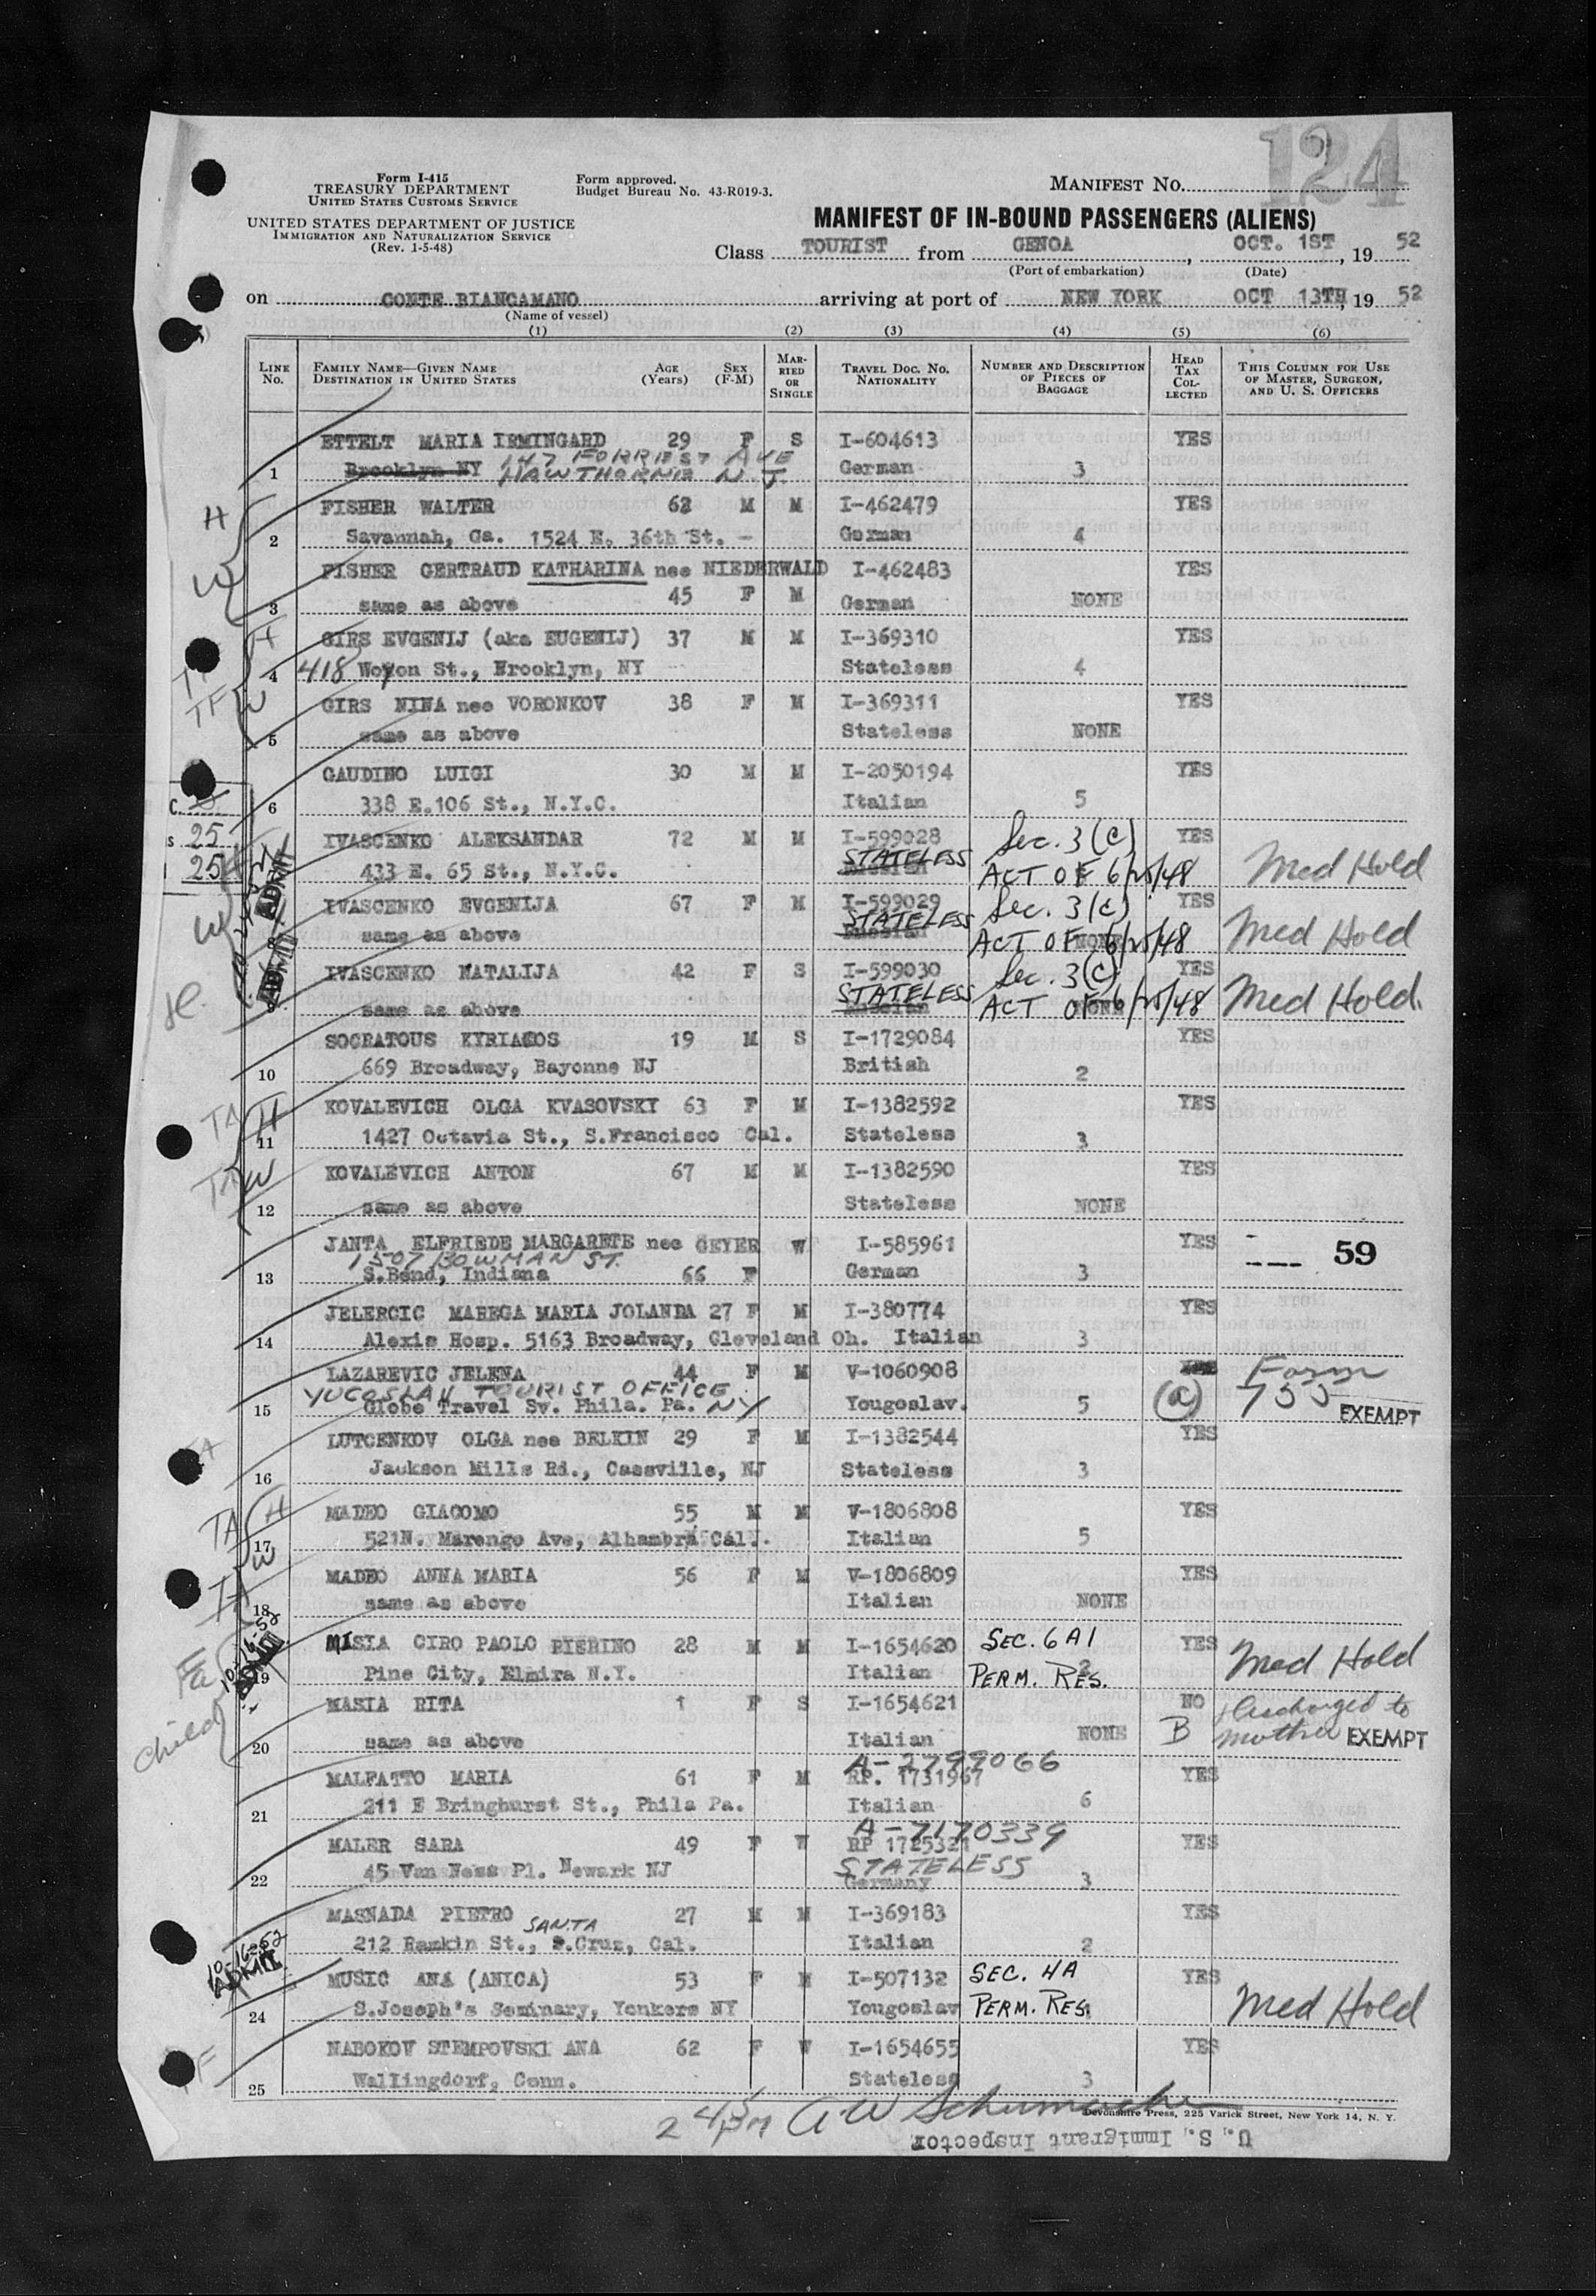 124
Form I-415
TREASURY DEPARTMENT
UNITED STATES CUSTOMS SERVICE
UNITED STATES DEPARTMENT OF JUSTICE
IMMIGRATION AND NATURALIZATION SERVICE
(Rev. 1-5-48)
Form approved.
Budget Bureau No. 43-R019-3.
MANIFEST NO.
MANIFEST OF IN-BOUND PASSENGERS (ALIENS)
Class TOURIST from GENOA, OCT. 1ST, 19 52
(Port of embarkation) (Date)
on CONTE BIANCAMANO arriving at port of NEW YORK OCT 13TH, 19 52
(Name of vessel)
(1) (2) (3) (4) (5) (6)
LINE NO. FAMILY NAME—GIVEN NAME DESTINATION IN UNITED STATES AGE (YEARS) SEX (F-M) MARRIED OR SINGLE TRAVEL DOC. NO. NATIONALITY NUMBER AND DESCRIPTION OF PIECES OF BAGGAGE HEAD TAX COLLECTED THIS COLUMN FOR USE OF MASTER, SURGEON, AND U. S. OFFICERS
ETTELT MARIA IRMINGARD 29 F S I-604613 YES
1 Brooklyn NY 147 FORREST AVE HAWTHORNE N.J. German 3
H FISHER WALTER 62 M M I-462479 YES
2 Savannah, Ga. 1524 E. 36th St. - German 4
W FISHER GERTRAUD KATHARINA nee NIEDERWALD I-462483 YES
3 same as above 45 F M German NONE
H GIRS EVGENIJ (aka EUGENIJ) 37 M M I-369310 YES
4 418 St., Brooklyn, NY Stateless 4
TF W GIRS NINA nee VORONKOV 38 F M I-369311 YES
5 same as above Stateless NONE
GAUDINO LUIGI 30 M M I-2050194 YES
6 338 E.106 St., N.Y.C. Italian 5
C.
S 25
25
IVASCENKO ALEKSANDAR 72 M M I-599028 Sec. 3(c) YES
ADMIT 433 E. 65 St., N.Y.C. STATELESS ACT OF 6/25/48 Med Hold
W IVASCENKO EVGENIJA 67 F M I-599029 Sec. 3(c) YES
8 same as above STATELESS Russian ACT OF 6/25/48 NONE Med Hold
ADMIT IVASCENKO NATALIJA 42 F S I-599030 Sec. 3(c) YES
9 same as above STATELESS Russian ACT OF 6/25/48 NONE Med Hold.
SOCRATOUS KYRIACOS 19 M S I-1729084 YES
10 669 Broadway, Bayonne NJ British 2
TA H KOVALEVICH OLGA KVASOVSKY 63 F M I-1382592 YES
11 1427 Octavia St., S.Francisco Cal. Stateless 3
TA W KOVALEVICH ANTON 67 M M I-1382590 YES
12 same as above Stateless NONE
JANTA ELFRIEDE MARGARETE nee GEYER W I-585961 YES
1507 BOWMAN ST.
13 S.Bend, Indiana 66 F German 3 59
JELERCIC MAREGA MARIA JOLANDA 27 F M I-380774 YES
14 Alexis Hosp. 5163 Broadway, Cleveland Oh. Italian 3
LAZAREVIC JELENA 44 F M V-1060908 Form
YUGOSLAV TOURIST OFFICE
15 Globe Travel Sv. Phila. Pa. NY Yougoslav. 5 (a) 755 EXEMPT
LUTCENKOV OLGA nee BELKIN 29 F M I-1382544 YES
16 Jackson Mills Rd., Cassville, NJ Stateless 3
TA H MADEO GIACOMO 55 M M V-1806808 YES
17 W 521N. Marengo Ave, Alhambra Cal. Italian 5
TA MADEO ANNA MARIA 56 F M V-1806809 YES
18 same as above Italian NONE
Fa 10-16-52 ADMIT MASIA CIRO PAOLO PIERINO 28 M M I-1654620 SEC. 6A1 YES
19 Pine City, Elmira N.Y. Italian 2 PERM. RES. Med Hold
child MASIA RITA 1 F S I-1654621 NO discharged to
20 same as above Italian NONE B mother EXEMPT
A-2799066
MALFATTO MARIA 61 F M RP. 1731967 YES
21 211 E Bringhurst St., Phila Pa. Italian 6
A-7170339
MALER SARA 49 F W RP 1725321 YES
22 45 Van Ness Pl. Newark NJ STATELESS Germany 3
MASNADA PIETRO 27 M M I-369183 YES
212 Rankin St., SANTA S.Cruz, Cal. Italian 2
10-16-52 ADMIT MUSIC ANA (ANICA) 53 F M I-507132 SEC. 4A YES
24 S.Joseph's Seminary, Yonkers NY Yougoslav PERM. RES. Med Hold
NABOKOV STEMPOVSKI ANA 62 F W I-1654655 YES
25 Wallingdorf, Conn. Stateless 3
Devonshire Press, 225 Varick Street, New York 14, N. Y.
2 45 PM A W Schumacher
U. S. Immigrant Inspector